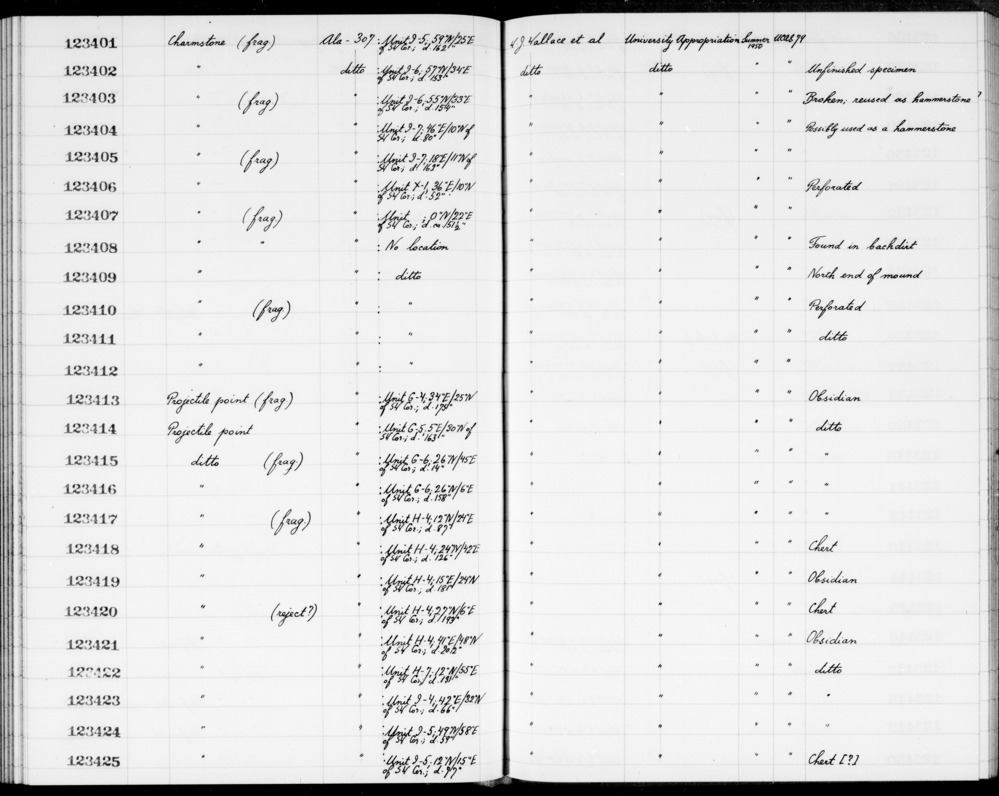 123401 Charmstone (frag) Ala - 307 : Unit I-5, 59"N/25"E W J Wallace et al University Appropriation Summer 1950 UCAS 79
of SW Cor.; d. 162"
123402 " ditto : Unit I-6, 57"N/34"E ditto ditto " " Unfinished specimen
of SW Cor.; d. 153"
123403 " (frag) " : Unit I-6, 55"N/33"E " " " " Broken; reused as hammerstone ?
of SW Cor.; d. 154"
123404 " " : Unit I-7, 46"E/10"N of " " " " Possibly used as a hammerstone
SW Cor.; d. 80"
123405 " (frag) " : Unit I-7, 18"E/11"N of " " " "
SW Cor.; d. 163"
123406 " " : Unit X-1, 36"E/10"N " " " " Perforated
of SW Cor.; d. 52"
123407 " (frag) " : Unit ; 0"N/22"E " " " "
of SW Cor.; d. ca 151½"
123408 " " " : No location " " " " Found in backdirt
123409 " " : ditto " " " " North end of mound
123410 " (frag) " : " " " " " Perforated
123411 " " : " " " " " ditto
123412 " " : " " " " "
123413 Projectile point (frag) " : Unit G-4, 34"E/25"N " " " " Obsidian
of SW Cor.; d. 175"
123414 Projectile point " : Unit G-5, 5"E/30"N of " " " " ditto
SW Cor.; d. 163"
123415 ditto (frag) " : Unit G-6, 26"N/45"E " " " " "
of SW Cor.; d. 14"
123416 " " : Unit G-6, 26"N/6"E " " " " "
of SW Cor.; d. 158"
123417 " (frag) " : Unit H-4, 12"N/24"E " " " " "
of SW Cor.; d. 87"
123418 " " : Unit H-4, 24"N/42"E " " " " Chert
of SW Cor.; d. 126"
123419 " " : Unit H-4, 15"E/24"N " " " " Obsidian
of SW Cor.; d. 181"
123420 " (reject?) " : Unit H-4, 27"N/6"E " " " " Chert
of SW Cor.; d. 193"
123421 " " : Unit H-4, 41"E/48"N " " " " Obsidian
of SW Cor.; d. 202"
123422 " " : Unit H-7, 12"N/55"E " " " " ditto
of SW Cor.; d. 131"
123423 " " : Unit I-4, 42"E/32"N " " " " "
of SW Cor.; d. 66"
123424 " " : Unit I-5, 49"N/58"E " " " " "
of SW Cor.; d. 59"
123425 " " : Unit I-5, 12"N/15"E " " " " Chert [?]
of SW Cor.; d. 77"